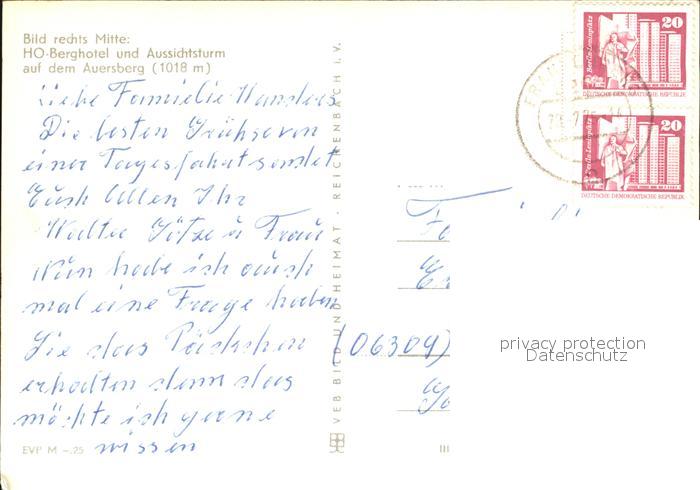 Bild rechts Mitte:
HO-Berghotel und Aussichtsturm
auf dem Auersberg (1018 m)
Liebe Familie
Die besten Grüße von
einer Tagesfahrt sendet
Euch Allen Ihr
Walter Götze u Frau
Nun habe ich auch
mal eine Frage haben
Sie das Päckchen
erhalten denn das
möchte ich gerne
wissen
(06304)
EVP M –.25
VEB BILD UND HEIMAT · REICHENBACH I. V.
III
20
Berlin-Leninplatz
DEUTSCHE DEMOKRATISCHE REPUBLIK
20
Berlin-Leninplatz
DEUTSCHE DEMOKRATISCHE REPUBLIK
privacy protection
Datenschutz